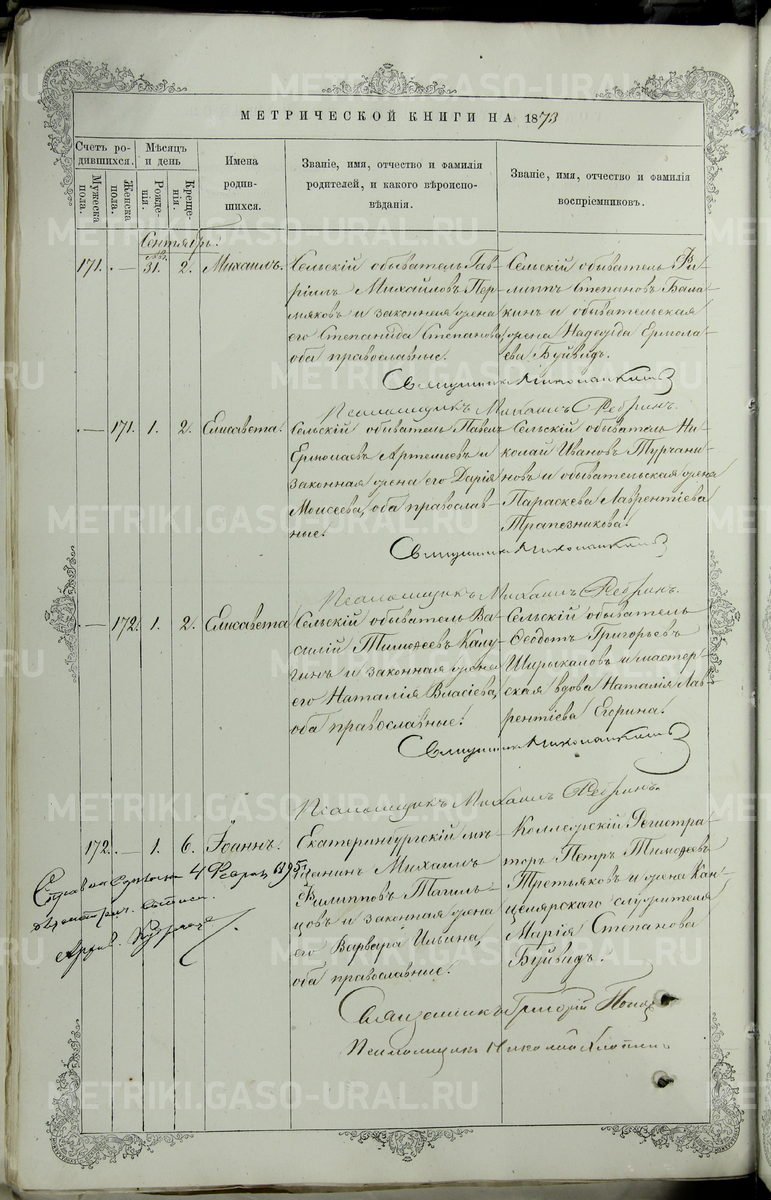 МЕТРИЧЕСКОЙ КНИГИ НА 1873
Счетъ ро-
дившихся.
Мужеска
пола.
Женска
пола.
Мѣсяцъ
и день
Рожде-
нія.
Креще-
нія.
Имена
родив-
шихся.
Званіе, имя, отчество и фамилія
родителей, и какого вѣроиспо-
вѣданія.
Званіе, имя, отчество и фамилія
воспріемниковъ.
Сентябрь.
171. — 31. 2. Михаилъ.
Сельскій обыватель Гав-
ріилъ Михайловъ Пер-
мяковъ и законная жена
его Степанида Степанова,
оба православные.
Сельскій обыватель Фи-
липпъ Степановъ Бала-
кинъ и обывательская
жена Надежда Ермола-
ева Буйвидъ.
Псаломщикъ Михаилъ Ребринъ.
— 171. 1. 2. Елисавета.
Сельскій обыватель Павелъ
Ермолаевъ Артемьевъ и
законная жена его Дарія
Моисеева, оба православ-
ные.
Сельскій обыватель Ни-
колай Ивановъ Турчани-
новъ и обывательская жена
Параскева Лаврентіева
Трапезникова.
Псаломщикъ Михаилъ Ребринъ.
— 172. 1. 2. Елисавета
Сельскій обыватель Ва-
силій Тимофеевъ Калу-
гинъ и законная жена
его Наталія Власіева,
оба православные.
Сельскій обыватель
Феодотъ Григорьевъ
Ширыкаловъ и мастер-
ская вдова Наталія Лав-
рентіева Егорина.
Псаломщикъ Михаилъ Ребринъ.
172. — 1. 6. Іоаннъ.
Екатеринбургскій мѣ-
щанинъ Михаилъ
Филипповъ Тагиль-
цовъ и законная жена
его Варвара Ильина,
оба православные.
Коллежскій Регистра-
торъ Петръ Тимофеевъ
Третьяковъ и жена Кан-
целярскаго служителя
Марія Степанова
Буйвидъ.
4
Священникъ Григорій Попов
Псаломщикъ Николай
METRIKI.GASO-URAL.RU